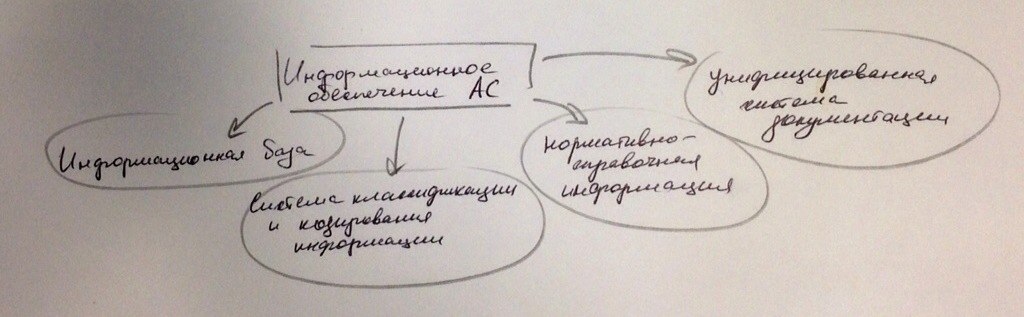 Информационное
обеспечение АС
Информационная база
Система классификации
и кодирования
информации
нормативно-
справочная
информация
унифицированная
система
документации